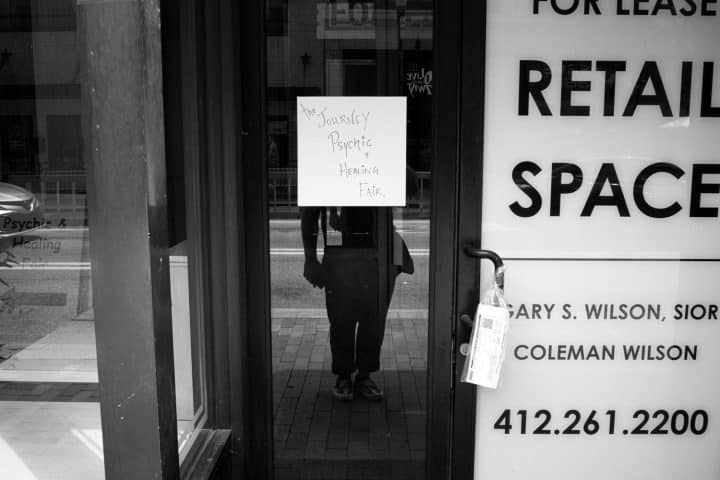 the JOURNEY
Psychic
+
HEALING
FAIR
Psychic &
Healing
Fair
FOR LEASE
RETAIL
SPACE
GARY S. WILSON, SIOR
COLEMAN WILSON
412.261.2200
Olive
Twig